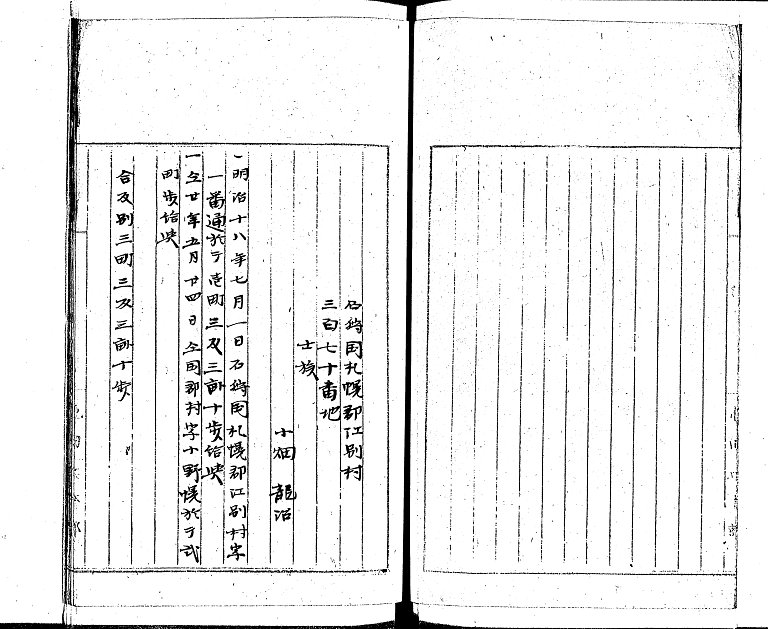 石狩国札幌郡江別村
三百七十番地
士族
小畑 龍治
一明治十八年七月一日石狩国札幌郡江別村字
一番通於テ壱町三反三畝十歩給与
一仝廿年五月廿四日仝国郡村字小野幌於テ弐
町歩給与
合反別三町三反三畝十歩